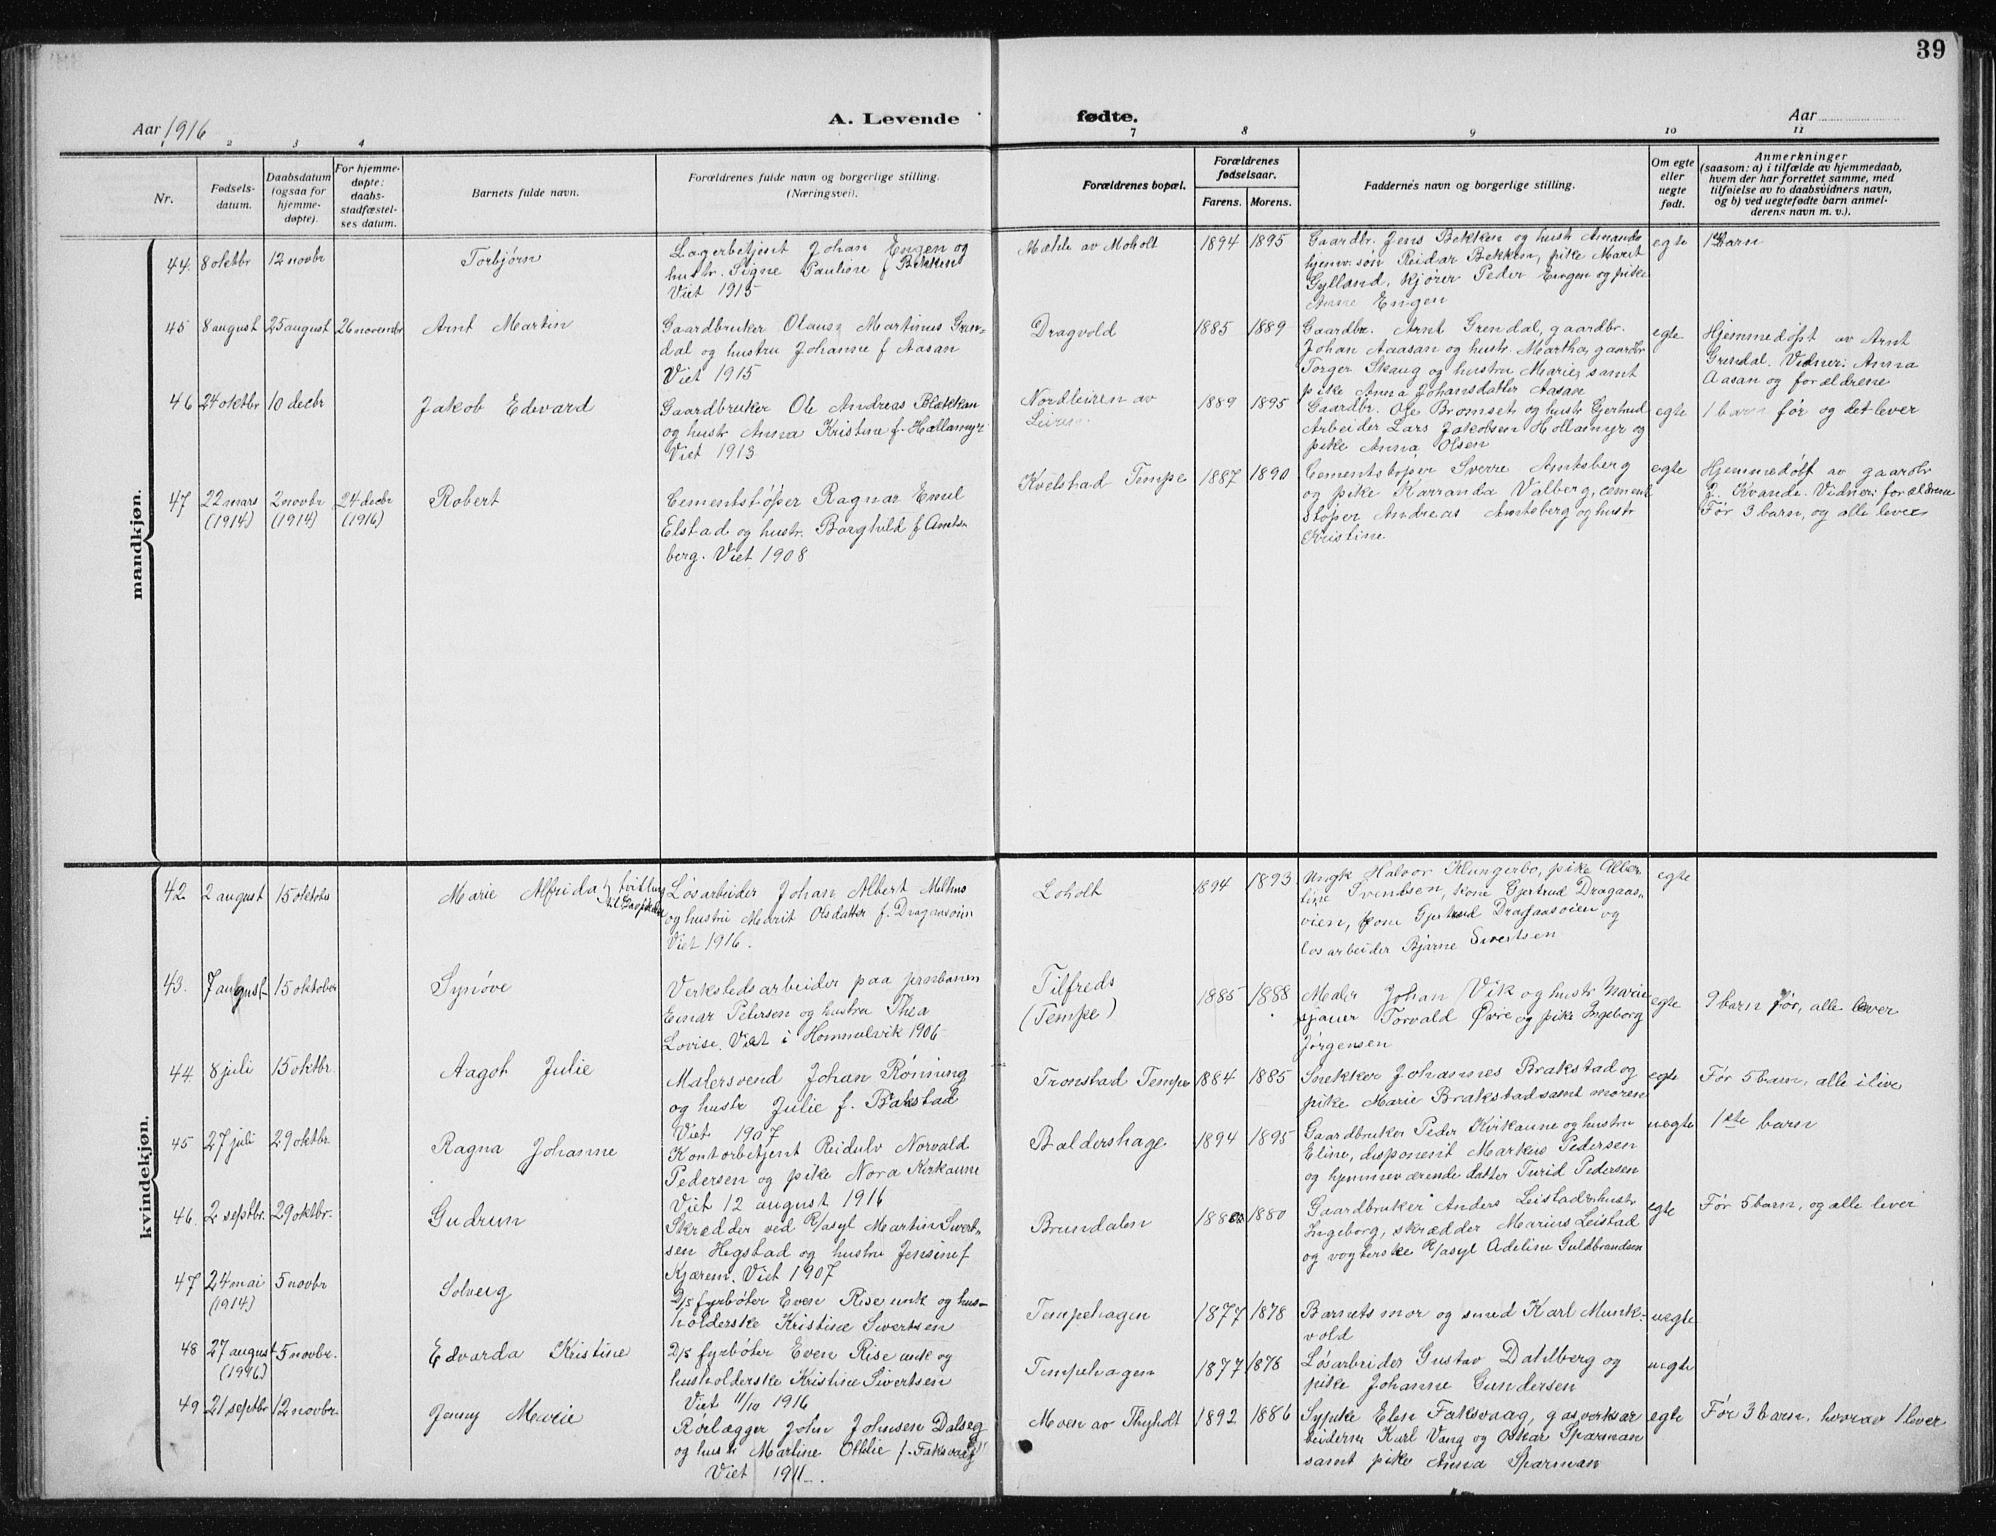 39
Aar 1916
A. Levende fødte.
Aar
1 2 3 4 7 8 9 10 11
Nr.
Fødsels-
datum.
Daabsdatum
(ogsaa for
hjemme-
døpte).
For hjemme-
døpte:
daabs-
stadfæstel-
ses datum.
Barnets fulde navn.
Forældrenes fulde navn og borgerlige stilling.
(Næringsvei).
Forældrenes bopæl.
Forældrenes
fødselsaar.
Farens. Morens.
Faddernes navn og borgerlige stilling.
Om egte
eller
uegte
født.
Anmerkninger
(saasom: a) i tilfælde av hjemmedaab,
hvem der har forrettet samme, med
tilføielse av to daabsvidners navn,
og b) ved uegtefødte barn anmel-
derens navn m. v.).
mandkjøn.
44. 8 oktbr 12 novbr
Torbjørn
Lagerbetjent Johan Engen og
hustr. Signe Pauline f Bekken
Viet 1915
Mæhle av Moholt
1894 1895
Gaardbr. Jens Bekken og hustr Amanda
hjemv. søn Reidar Bekken, pike Marit
Gylland, kjører Peder Engen og pike
Anne Engen
egte
1ste barn
45 8 august 25 august 26 novembr
Arnt Martin
Gaardbruker Olaus Martinus Gren-
dal og hustru Johanne f Aasan
Viet 1915
Dragvold
1885 1889
Gaardbr. Arnt Grendal, gaardbr.
Johan Aaasan og hustr. Martha, gaardbr
Torger Skaug og hustru Marie, samt
pike Anna Johansdatter Aasan
egte
Hjemmedøpt av Arnt
Grendal. Vidner: Anna
Aasan og forældrene
46 24 oktbr 10 decbr
Jakob Edvard
Gaardbruker Ole Andreas Blekkan
og hustr Anna Kristine f. Hallamyr
Viet 1913
Nordleiren av
Leiren.
1889 1895
Gaardbr. Ole Bromset og hustr Gjertrud
Arbeider Lars Jakobsen Hollamyr og
pike Anna Olsen
egte
1 barn før og det lever
47 22 mars 2 novbr 24 decbr
(1914) (1914) (1916)
Robert
Cementstøper Ragnar Emil
Elstad og hustr. Borghild f Amts-
berg. Viet 1908
Kvelstad Tempe
1887 1890
Cementstøper Sverre Amtsberg
og pike Karranda Valberg, cement
støper Andreas Amtsberg og hustr
Kristine
egte
Hjemmedøpt av gaardbr
J. Kvande. Vidner: forældrene
Før 3 barn, og alle lever
kvindekjøn.
42 2 august 15 oktober
Marie Alfrida
Løsarbeider Johan Albert Melhus
og hustru Marit Olsdatter f. Dragaasvien
Viet 1916.
Loholt
1894 1893
Ungk Halvor Klungerbo, pike Alber-
tine Svendsen, kone Gjertrud Dragaas-
vien, kone Gjertrud Dragaasvien og
løsarbeider Bjarne Sivertsen
egte
43. 7 august 15 oktober
Synøve
Verkstedsarbeider paa jernbanen
Einar Petersen og hustru Thea
Lovise. Viet i Hommelvik 1906
Tilfreds
(Tempe)
1885 1888
Maler Johan Vik og hustr Marie
sjauer Torvald Øvre og pike Ingeborg
Jørgensen
egte
9 barn før, alle lever
44. 8 juli 15 oktbr.
Aagot Julie
Malersvend Johan Rønning
og hustr Julie f. Bakstad
Viet 1907
Tronstad Tempe
1884 1885
Snekker Johannes Brakstad og
pike Marie Brakstad samt moren
egte
Før 5 barn, alle i live
45 27 juli 29 oktbr.
Ragna Johanne
Kontorbetjent Reidulv Norvald
Pedersen og pike Nora Kirkaune
Viet 12 august 1916
Baldershage
1894 1895
Gaardbruker Peder Kirkaune og hustru
Eline, disponent Markus Pedersen
og hjemmeværende datter Turid Pedersen
uegte
1ste barn
46. 2 septbr. 29 oktbr.
Gudrun
Skrædder ved R/asyl Martin Sivert-
sen Hegstad og hustru Jensine f
Kjærem. Viet 1907
Brundalen
1880
Gaardbruker Anders Leistad og hustr
Ingeborg, skrædder Marius Leistad
og vogterske R/asyl Adeline Guldbrandsen
egte
Før 5 barn, og alle lever
47 24 mai 5 novbr
(1914)
Solveig
D/s fyrbøter Even Rise unk og hus-
holderske Kristine Sivertsen
Tempehagen
1877 1878
Barnets mor og smed Karl Munk-
vold
uegte
48 27 august 5 novbr.
(1916)
Edvarda Kristine
D/s fyrbøter Even Rise unk og
husholderske Kristine Sivertsen
Viet 11/10 1916
Tempehagen
1877 1878
Løsarbeider Gustav Dahlberg og
pike Johanne Gundersen
uegte
49 21 septbr 12 novbr.
Jenny Marie
Rørlægger John Johnsen Dalseg
og hustr Marline Othilie f. Faksvaag
Viet 1911.
Moen av Thyholt
1892 1886
Sypike Elen Faksvaag, gasverksar
beiderne Karl Vang og Oskar Sparman
samt pike Anna Sparman
egte
Før 3 barn, hvorav 1 lever